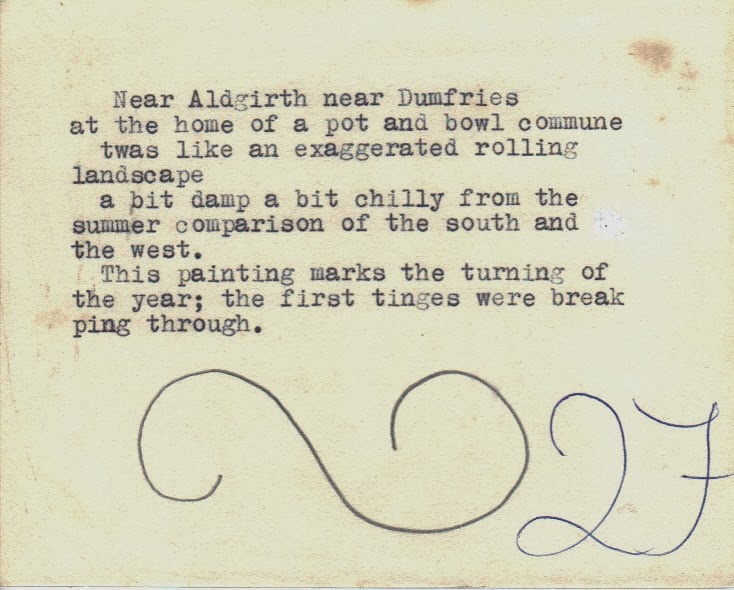 Near Aldgirth near Dumfries
at the home of a pot and bowl commune
twas like an exaggerated rolling
landscape
a bit damp a bit chilly from the
summer comparison of the south and
the west.
This painting marks the turning of
the year; the first tinges were break
ping through.
27